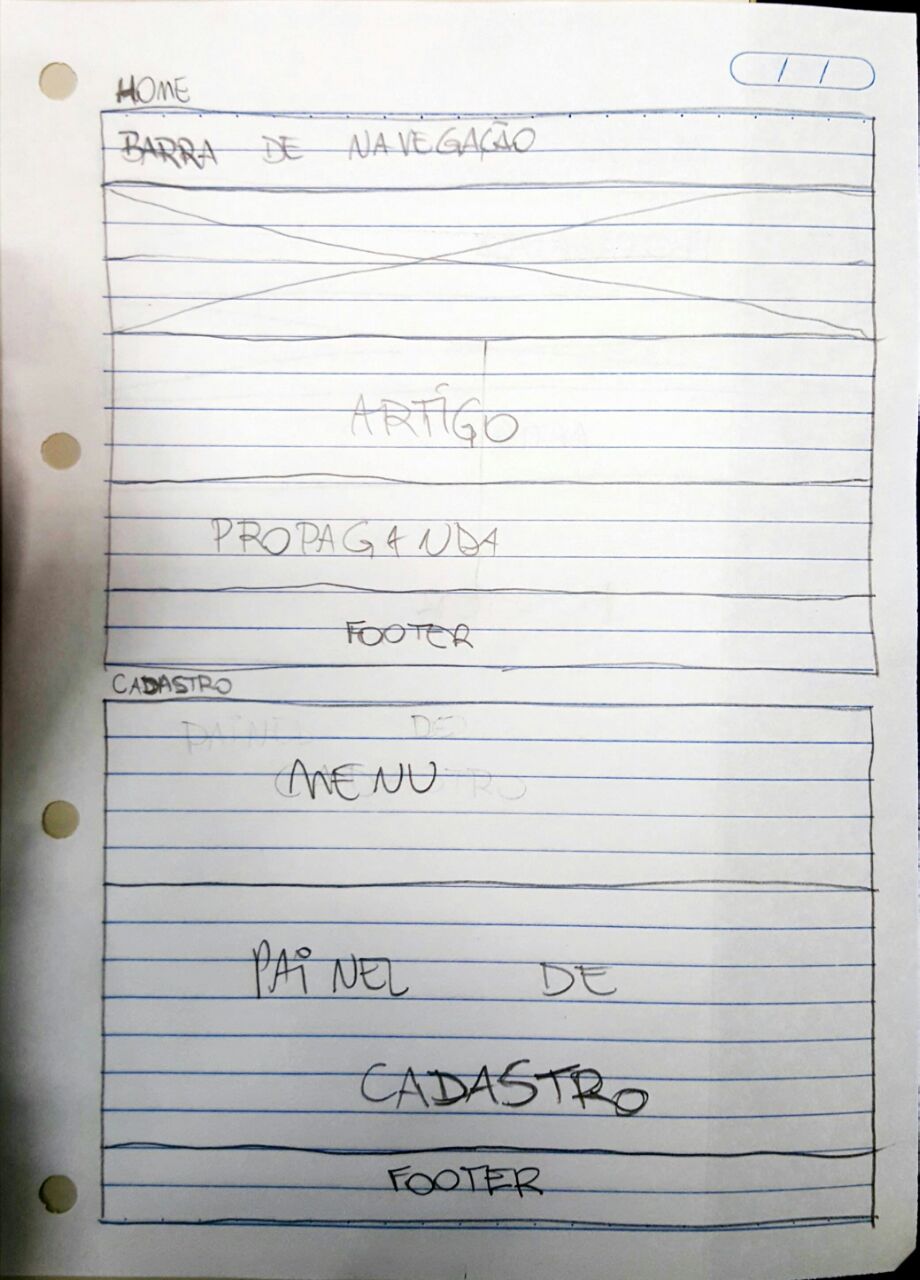 HOME
BARRA DE NAVEGAÇÃO
ARTIGO
PROPAGANDA
FOOTER
CADASTRO
PAINEL DE
MENU
PAINEL DE
CADASTRO
FOOTER